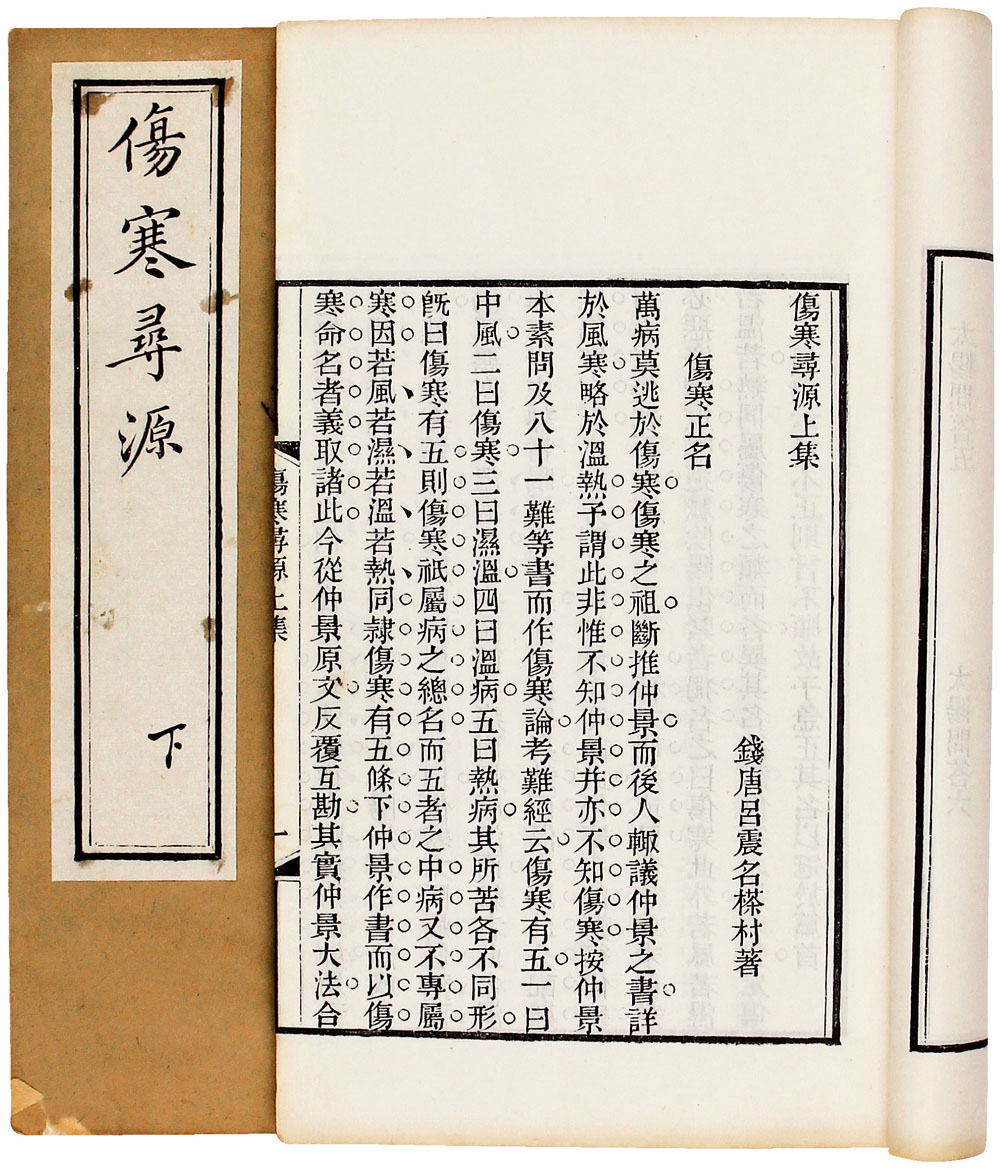 傷寒尋源
下
傷寒尋源上集
錢唐呂震名㮣村著
傷寒正名
萬病莫逃於傷寒傷寒之祖斷推仲景而後人輙議仲景之書詳
於風寒略於溫熱予謂此非惟不知仲景并亦不知傷寒按仲景
本素問及八十一難等書而作傷寒論考難經云傷寒有五一曰
中風二曰傷寒三曰濕溫四曰溫病五曰熱病其所苦各不同形
旣曰傷寒有五則傷寒祇屬病之總名而五者之中病又不專屬
寒因若風若濕若溫若熱同隸傷寒有五條下仲景作書而以傷
寒命名者義取諸此今從仲景原文反覆互勘其實仲景大法合
傷寒尋源上集
一